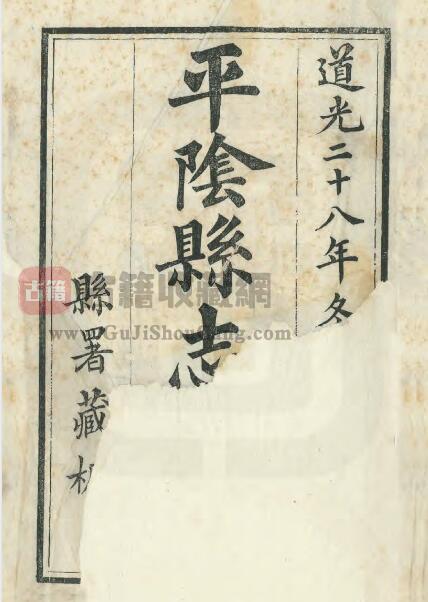 道光二十八年冬
平陰縣志
縣署藏板
古籍
古籍收藏網
www.GuJiShouCang.com